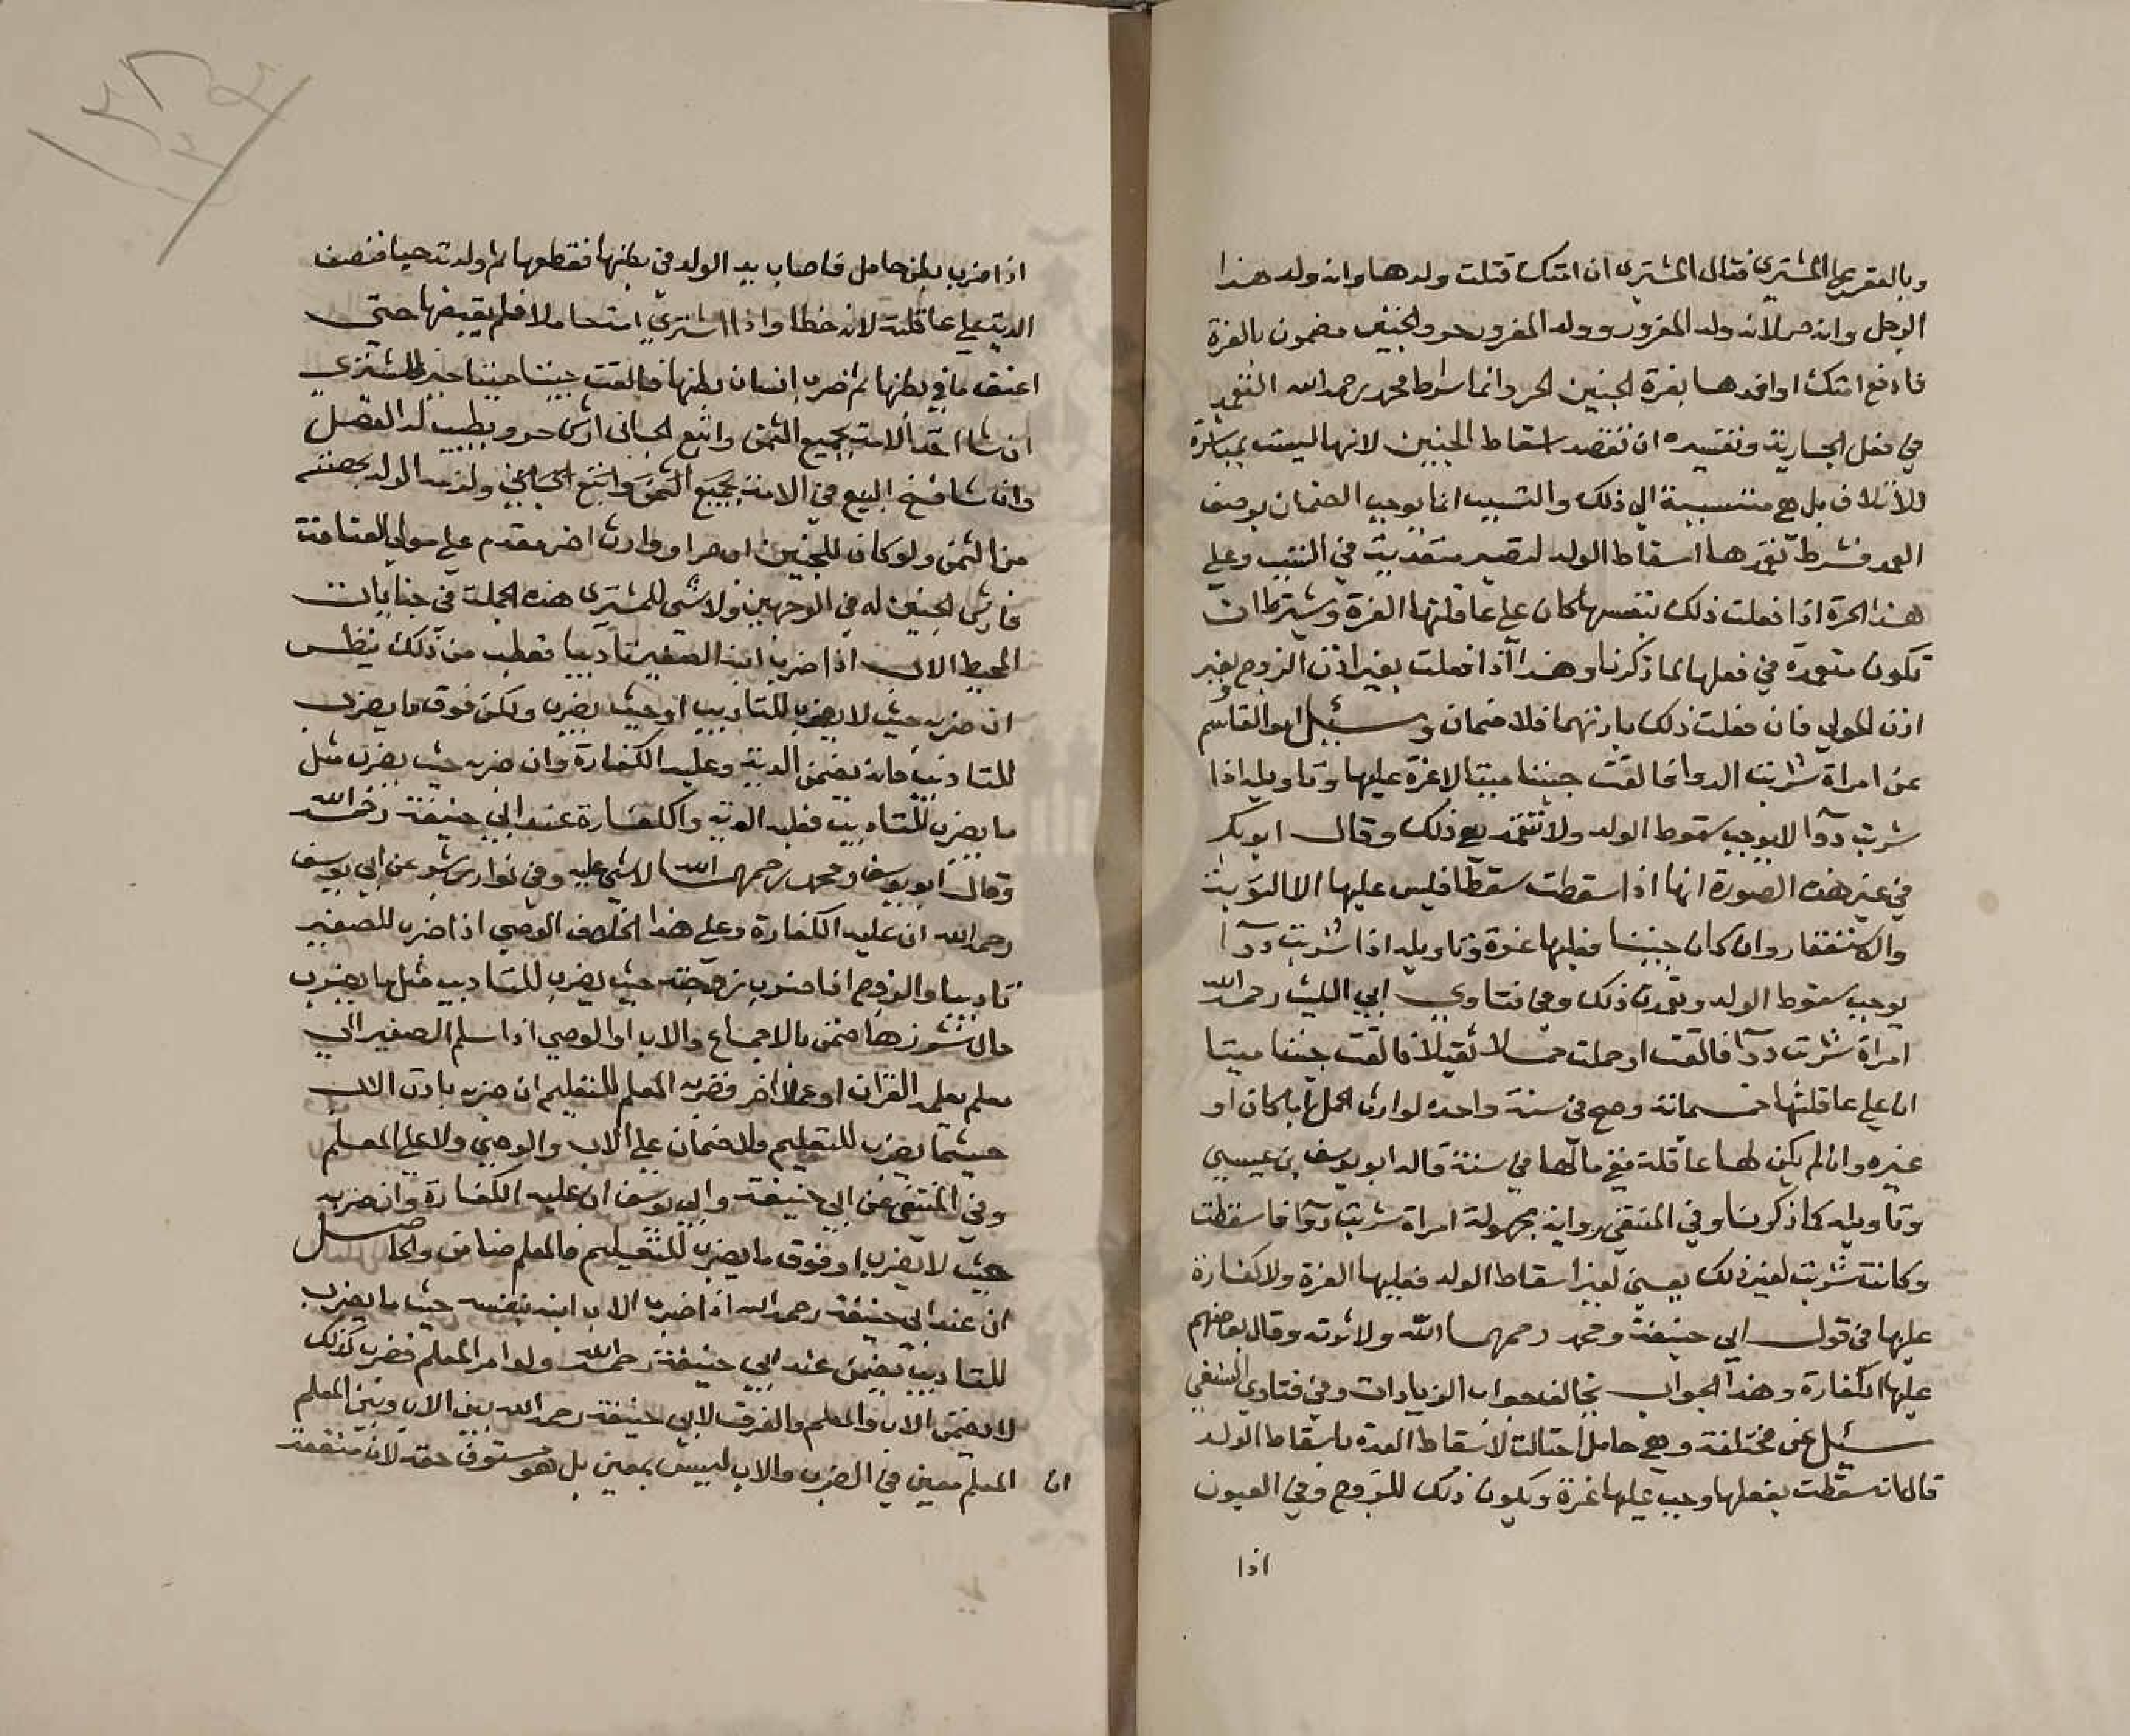 وبالعقر على المشتري فقال المشتري ان امتك قتلت ولدها وانه ولد هذا
الرجل وانه حر لانه ولد المغرور وولد المغرور حر والجنين مضمون بالغرة
فادفع امتك او افدها بغرة الجنين الحر وانما شرط محمد رحمه الله التعمد
في فعل الجارية وتفسيره ان تقصد اسقاط الجنين لانها ليست بمباشرة
للاتلاف بل هي متسببة الى ذلك والتسبب انما يوجب الضمان بوصف
العمد فشرط تعمدها اسقاط الولد لتصير متعدية في التسبب وعلى
هذا الحرة اذا فعلت ذلك بنفسها كان على عاقلتها الغرة ويشترط ان
تكون متعمدة في فعلها لما ذكرنا وهذا اذا فعلت بغير اذن الزوج او بغير
اذن المولي فان فعلت ذلك باذنهما فلا ضمان وسئل ابو القاسم
عن امراة شربت الدوا فالقت جنينا ميتا لا غرة عليها وتاويله اذا
شربت دوآ لا يوجب سقوط الولد ولا تتعمد ذلك وقال ابو بكر
في عين هذه الصورة انها اذا سقطت سقطا فليس عليها الا التوبة
والاستغفار وان كان جنينا فعليها غرة وتاويله اذا شربت دوآ
يوجب سقوط الولد وتعمدت ذلك وفي فتاوي ابي الليث رحمه الله
امراة شربت دوآ فالقت او حملت حملا ثقيلا فالقت جنينا ميتا
ان على عاقلتها خمسمائة وهي في سنة واحده لوارث الحمل ابا كان او
غيره وان لم يكن لها عاقلة ففي مالها في سنة قاله ابو يوسف بن عيسي
وتاويله كما ذكرنا وفي المنتقي رواية مجهولة امراة شربت دوآ فاسقطت
وكانت شربت لغير ذلك يعني لغير اسقاط الولد فعليها الغرة ولا كفارة
عليها في قول ابي حنيفة ومحمد رحمهما الله ولا ترثه وقال بعضهم
عليها الكفارة وهذا الجواب يخالف جواب الزيادات وفي فتاوي النسفي
سئل عن مختلعة وهي حامل احتالت لاسقاط العدة باسقاط الولد
قال ان سقطت بفعلها وجب عليها غرة ويكون ذلك للزوج وفي العيون
اذا
اذا ضرب بطن حامل فاصاب يد الولد في بطنها فقطعها ثم ولدته حيا فنصف
الدية على عاقلته لانه خطا واذا اشتري امة حاملا فلم يقبضها حتي
اعتق ما في بطنها ثم ضرب انسان بطنها فالقت جنينا ميتا خير المشتري
ان شا اخذ الامة بجميع الثمن واتبع الجاني ارش حر ويطيب له الفضل
وان شا فسخ البيع في الامة بجميع الثمن واتبع الجاني ولزمه الولد بحصته
من الثمن ولو كان للجنين اب حر او وارث اخر مقدم على مولي العتاقة
فارش الجنين له في الوجهين ولا شي للمشتري هذه الجملة في جنايات
المحيط الاب اذا ضرب ابنه الصغير تاديبا فعطب من ذلك ينظر
ان ضربه حيث لا يضرب للتاديب او حيث يضرب ولكن فوق ما يضرب
للتاديب فانه يضمن الدية وعليه الكفارة وان ضربه حيث يضرب مثل
ما يضرب للتاديب فعليه الدية والكفارة عند ابي حنيفة رحمه الله
وقال ابو يوسف ومحمد رحمهما الله لا شي عليه وفي نوادر بشر عن ابي يوسف
رحمه الله ان عليه الكفارة وعلى هذا الخلاف الوصي اذا ضرب للصغير
تاديبا والزوج اذا ضرب زوجته حيث يضرب للتاديب مثل ما يضرب
حال نشوزها ضمن بالاجماع والاب او الوصي اذا سلم الصغير الي
معلم يعلمه القران او عملا اخر فضربه المعلم للتعليم ان ضربه باذن الاب
حيثما يضرب للتعليم فلا ضمان على الاب والوصي ولا على المعلم
وفي المنتقي عن ابي حنيفة وابي يوسف ان عليه الكفارة وان ضربه
حيث لا يضرب او فوق ما يضرب للتعليم فالمعلم ضامن والحاصل
ان عند ابي حنيفة رحمه الله اذا ضرب الاب ابنه بنفسه حيث ما يضرب
للتاديب يضمن عند ابي حنيفة رحمه الله ولو امر المعلم فضرب كذلك
لا يضمن الاب والمعلم والفرق لابي حنيفة رحمه الله بين الاب وبين المعلم
ان المعلم معين في الضرب والاب ليس بمعين بل هو مستوف حقه لان منفعة